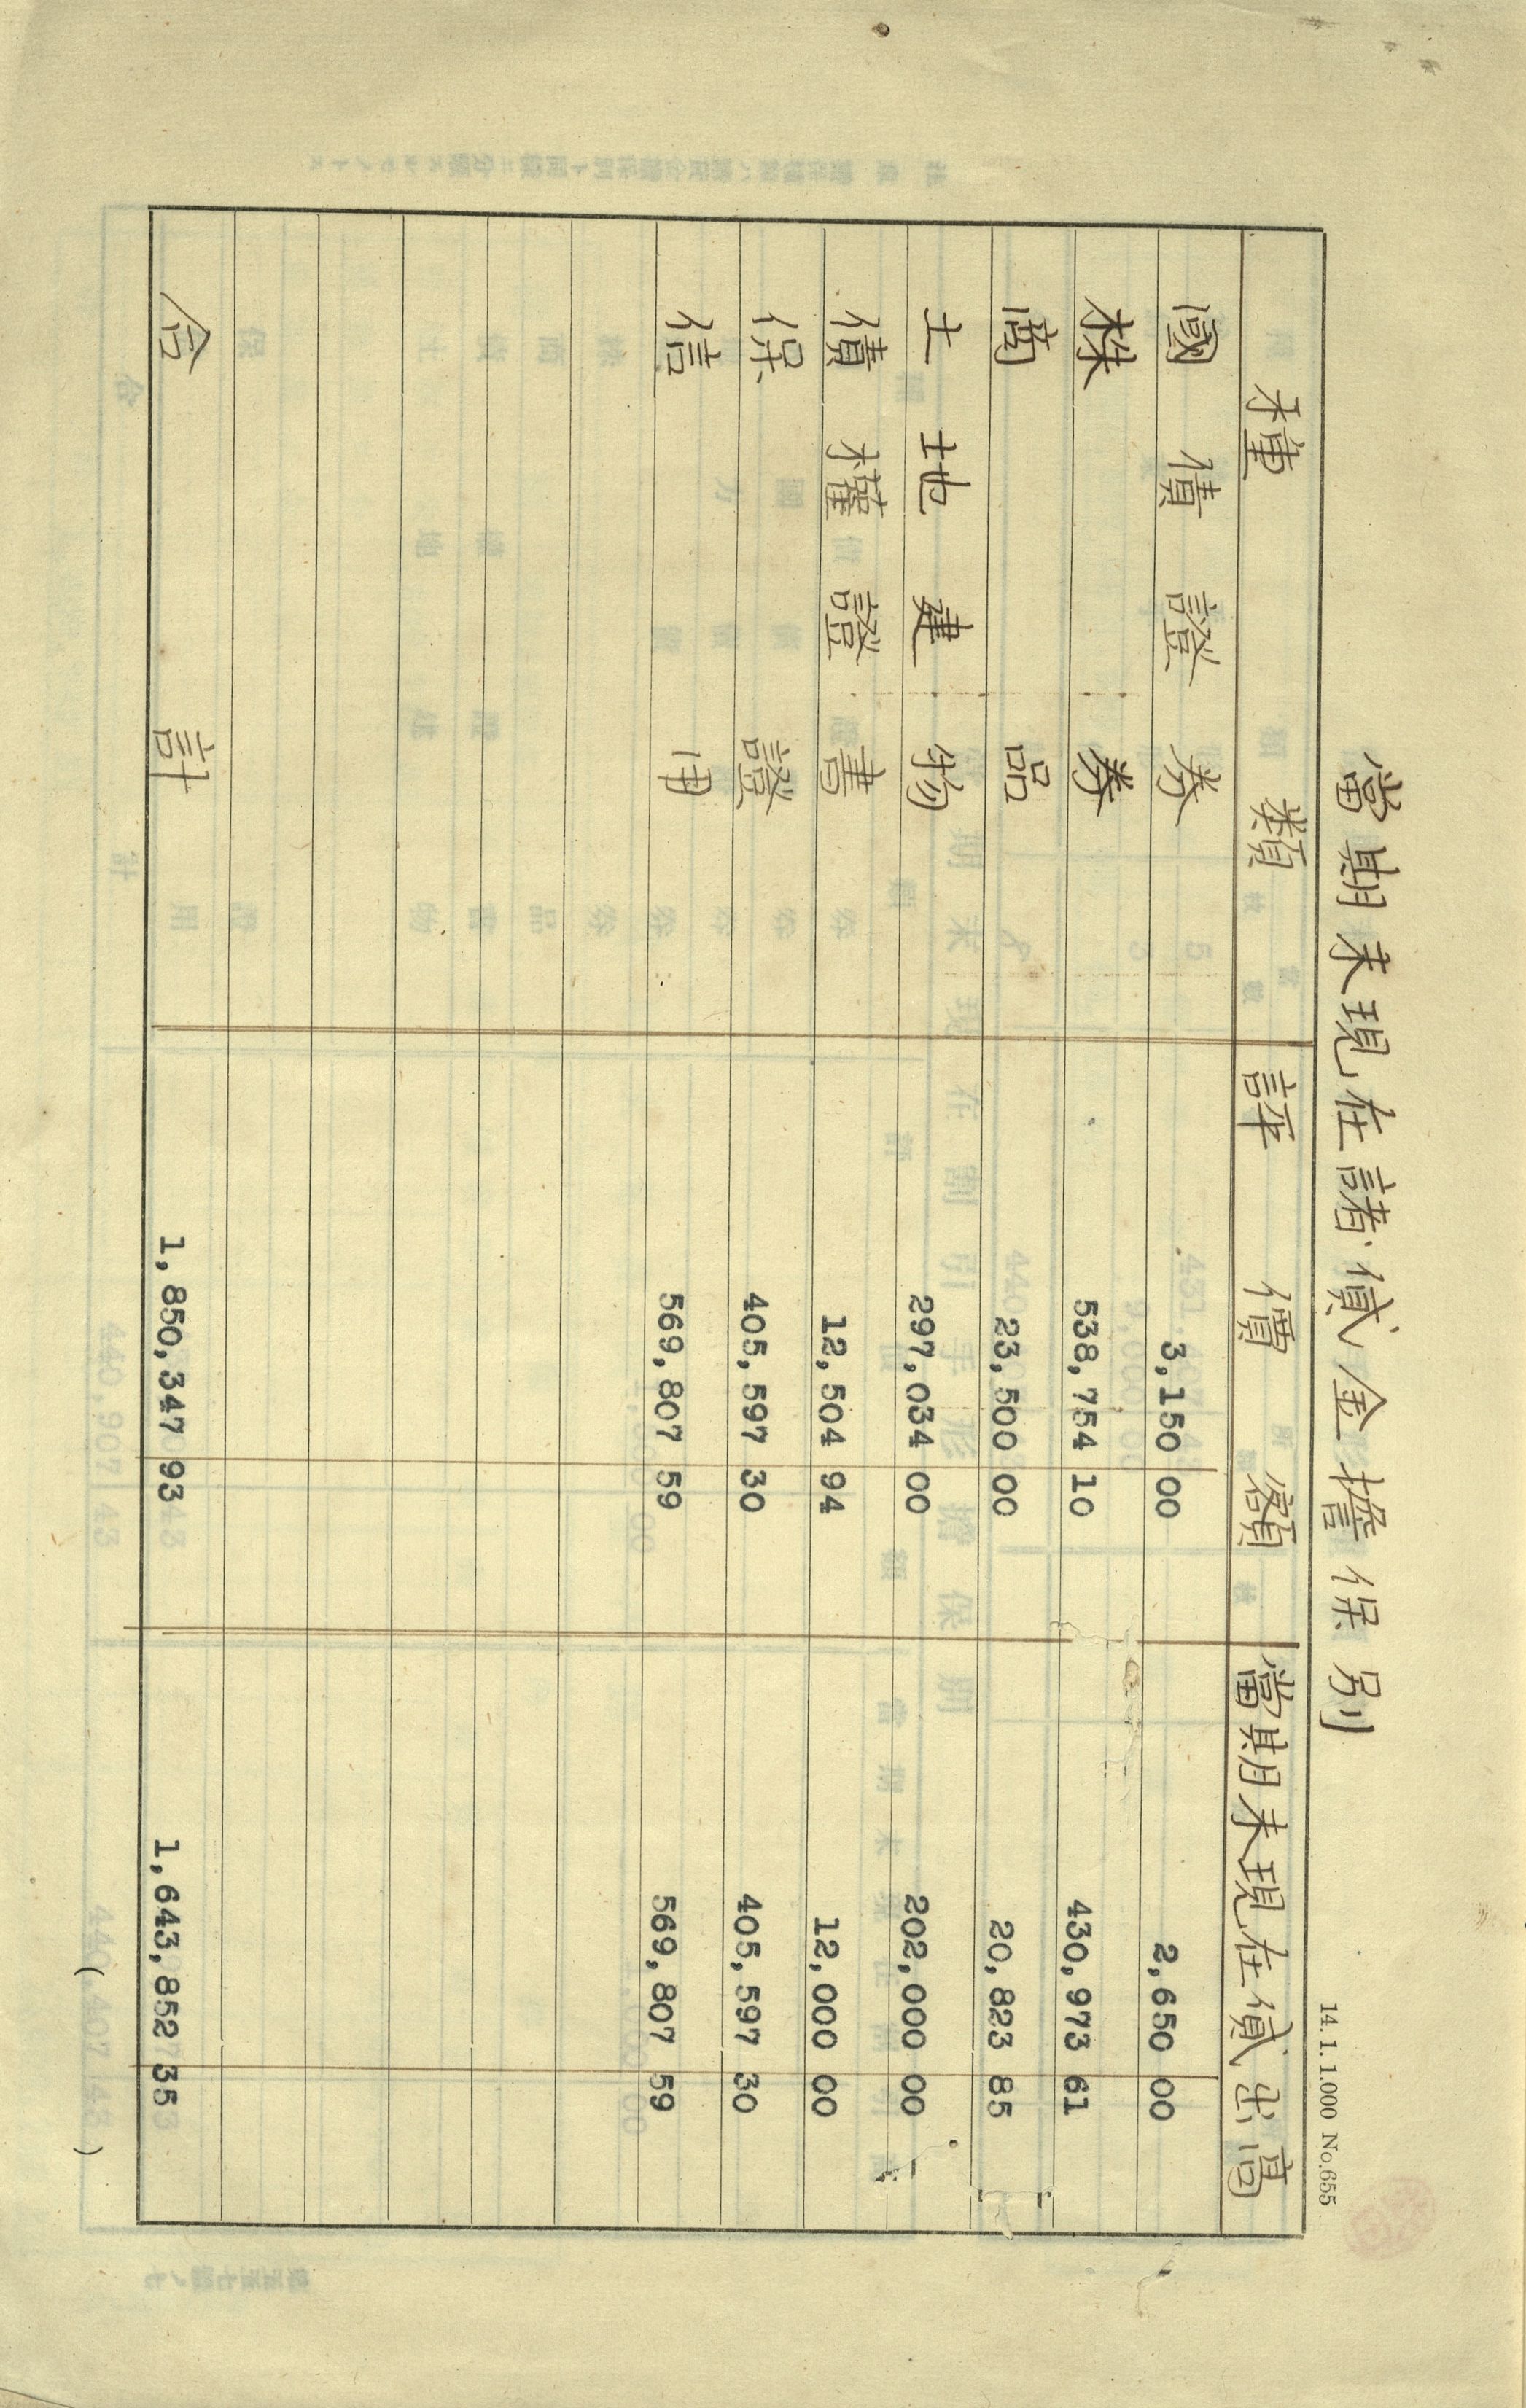 當期末現在諸貸金擔保別
14.1.1.000 No.655
種類 評價額 當期末現在貸出高
國債證券 3,150 00 2,650 00
株券 538,754 10 430,973 61
商品 23,500 00 20,823 85
土地建物 297,034 00 202,000 00
債權證書 12,504 94 12,000 00
保證 405,597 30 405,597 30
信用 569,807 59 569,807 59
合計 1,850,347 93 1,643,852 35
( )